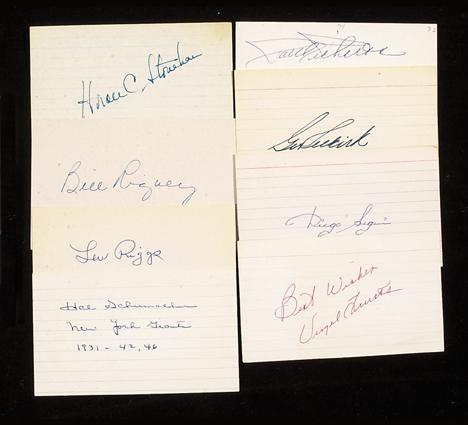 Horace C. Stoneham
Bill Rigney
Lew Riggs
Hal Schumacher
New York Giants
1931 - 42, 46
Geo Selkirk
Diego Segui
Best Wishes
Virgil Trucks